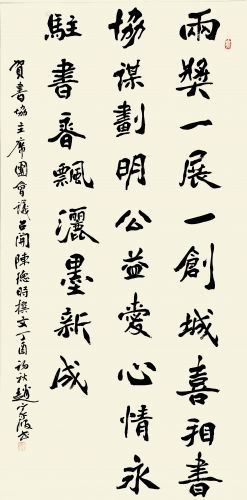 兩獎一展一創城喜相書
協謀劃明公益愛心情永
駐書香飄灑墨新成
賀書協主席團會議召開陳總時撰文丁酉初秋趙